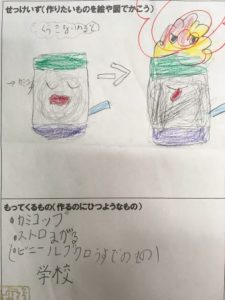 せっけいず(作りたいものを絵や図でかこう)
もってくるもの(作るのにひつようなもの)
・カミコップ
・ストロまがる
(ビニールブクロうすでのもの)
学校